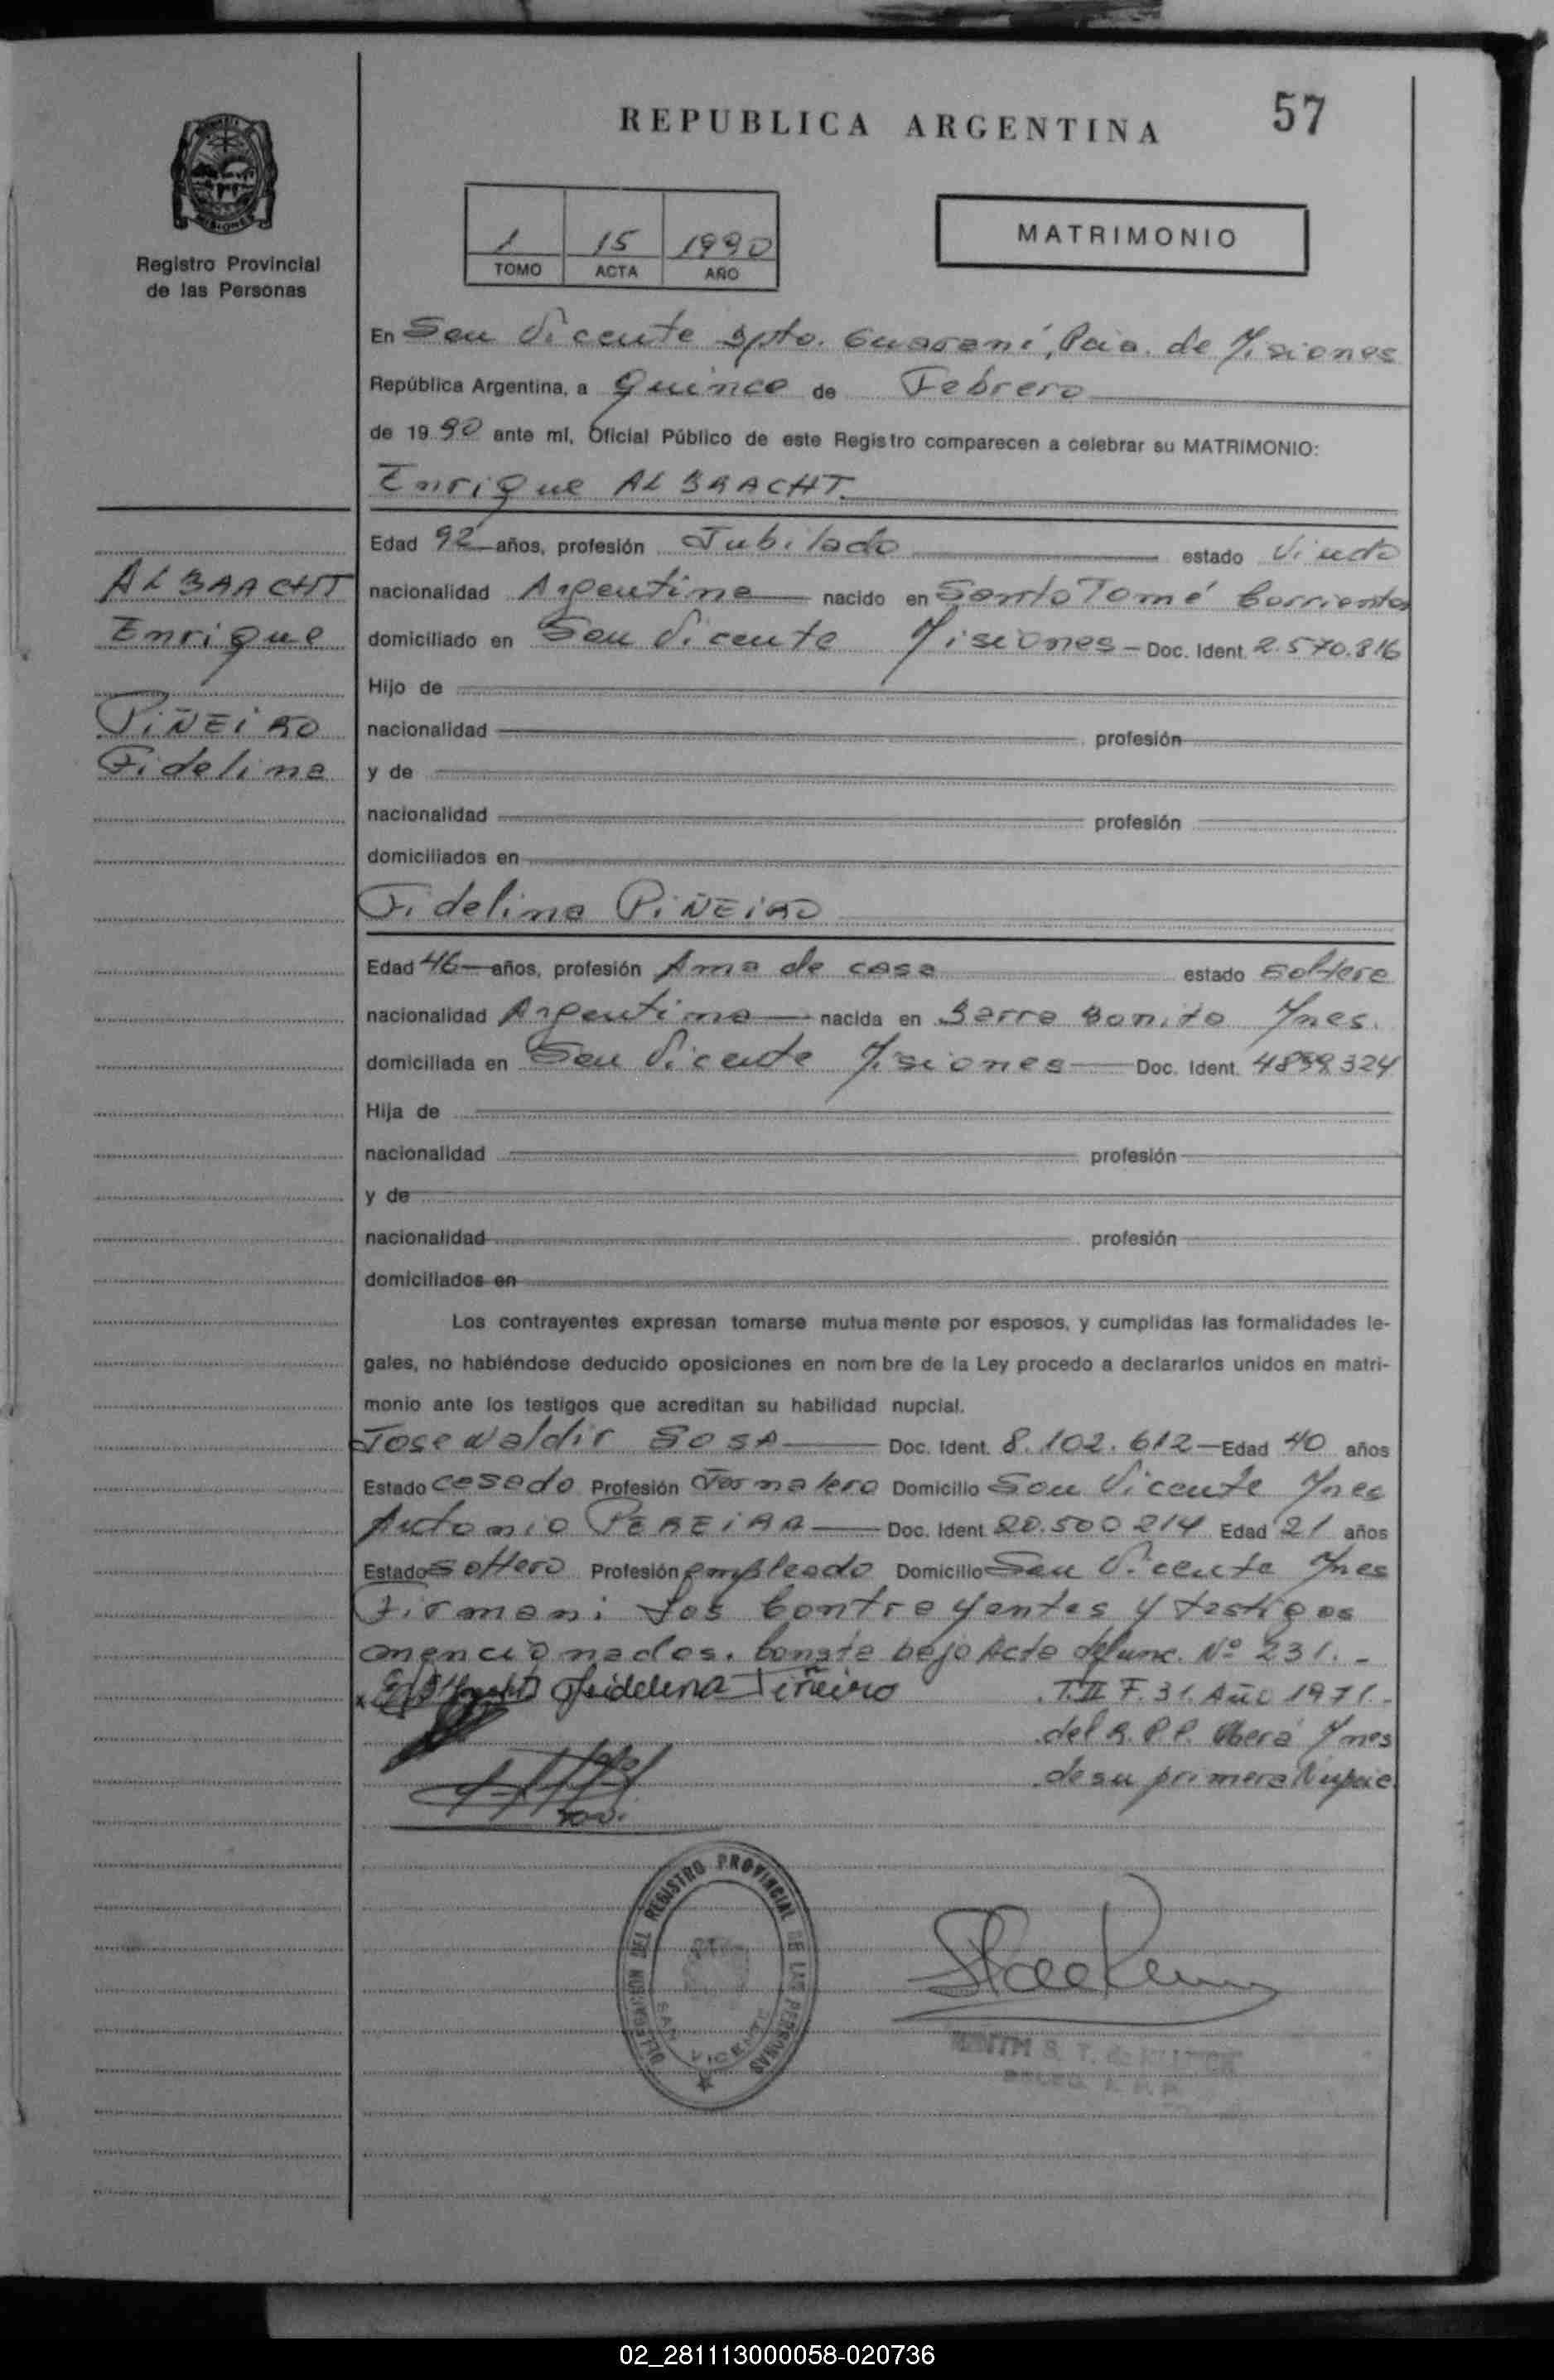 REPUBLICA ARGENTINA
57
Registro Provincial
de las Personas
1 15 1990
TOMO ACTA AÑO
MATRIMONIO
En San Vicente Dpto. Guaraní, Pcia. de Misiones
República Argentina, a Quince de Febrero
de 1990 ante mí, Oficial Público de este Registro comparecen a celebrar su MATRIMONIO:
Enrique ALBRACHT
Edad 92 años, profesión Jubilado estado Viudo
ALBRACHT
nacionalidad Argentina nacido en Santo Tomé Corrientes
Enrique
domiciliado en San Vicente Misiones - Doc. Ident. 2.570.816
Hijo de
PIÑEIRO
nacionalidad profesión
Fidelina
y de
nacionalidad profesión
domiciliados en
Fidelina PIÑEIRO
Edad 46 años, profesión Ama de casa estado Soltera
nacionalidad Argentina nacida en Barra Bonita Mnes.
domiciliada en San Vicente Misiones Doc. Ident. 4899324
Hija de
nacionalidad profesión
y de
nacionalidad profesión
domiciliados en
Los contrayentes expresan tomarse mutuamente por esposos, y cumplidas las formalidades le-
gales, no habiéndose deducido oposiciones en nombre de la Ley procedo a declararlos unidos en matri-
monio ante los testigos que acreditan su habilidad nupcial.
Jose Waldir SOSA Doc. Ident. 8.102.612 - Edad 40 años
Estado casado Profesión Jornalero Domicilio San Vicente Mnes
Antonio PEREIRA Doc. Ident. 20.500214 Edad 21 años
Estado soltero Profesión empleado Domicilio San Vicente Mnes
Firman: Los Contrayentes y testigos
mencionados. Consta bajo Acta defunc. Nº 231. -
Fidelina Piñeiro T. II F. 31. Año 1971. -
del R.P.P. Oberá Mnes
de su primera Nupcia.
DELEGACION DEL REGISTRO PROVINCIAL DE LAS PERSONAS
SAN VICENTE
02_281113000058-020736